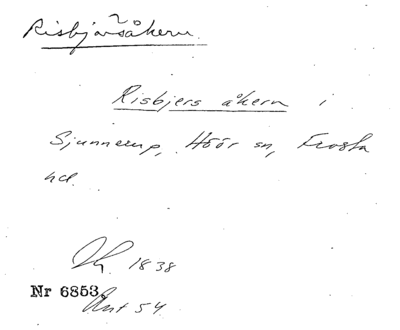 Risbjärsåkern
Risbjers åkern i
Sjunnerup, Höör sn, Frosta
hd.
1838
Nr 6853
Ant 54